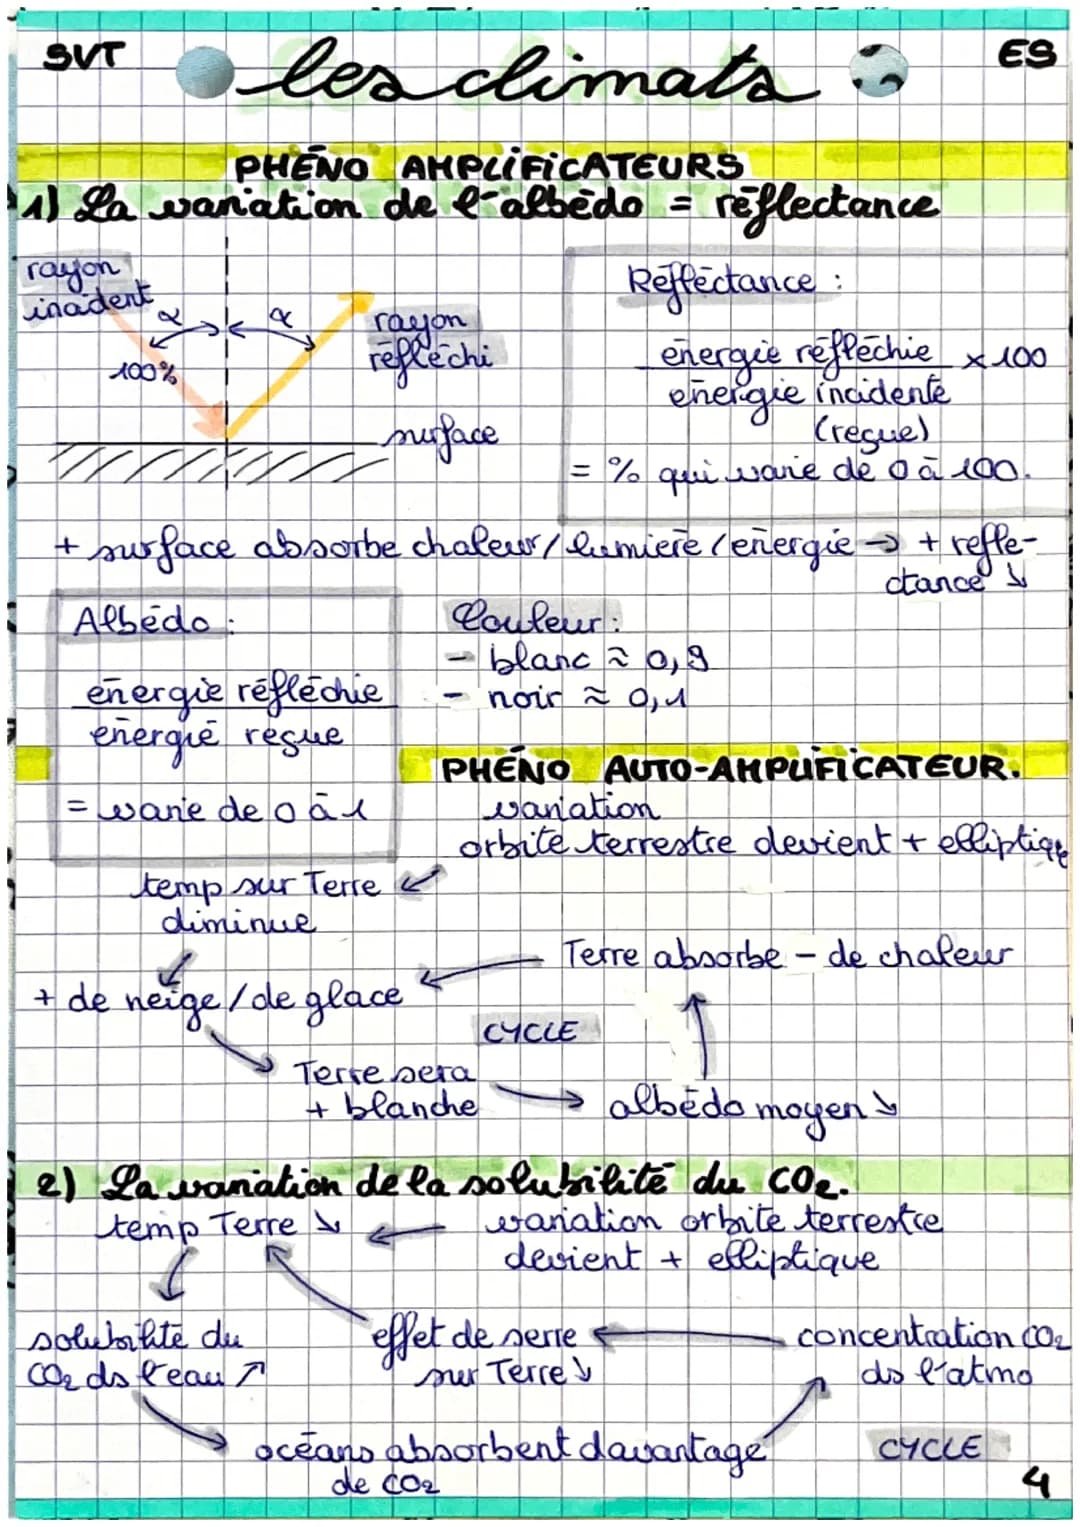 SVT
les climats
ES
PHÉNO AMPLIFICATEURS
1) La variation de l'albédo = réflectance
rayon
incident
α
α
100%
rayon
réfléchi
surface
Réfléctance :
énergie réfléchie x 100
énergie incidente
(reçue)
= % qui varie de 0 à 100.
+ surface absorbe chaleur/lumière/énergie → + réflé-
ctance ↘
Albédo :
énergie réfléchie
énergie reçue
= varie de 0 à 1
Couleur :
- blanc ≈ 0,9
- noir ≈ 0,1
PHÉNO AUTO-AMPLIFICATEUR.
variation
orbite terrestre devient + elliptique
temp sur Terre
diminue
Terre absorbe - de chaleur
+ de neige / de glace
CYCLE
Terre sera
+ blanche
albédo moyen ↘
2) La variation de la solubilité du CO2.
temp Terre ↘
variation orbite terrestre
devient + elliptique
solubilité du
CO2 ds l'eau ↗
effet de serre
sur Terre ↘
concentration CO2
ds l'atmo
océans absorbent davantage
de CO2
CYCLE
4